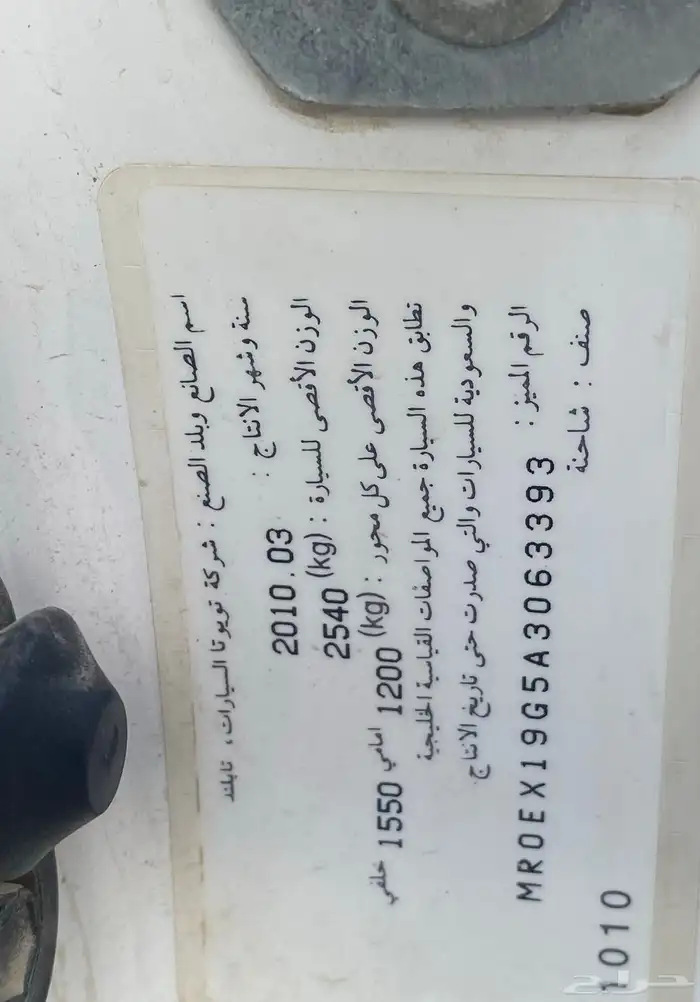 اسم الصانع وبلد الصنع : شركة تويوتا للسيارات، تايلند
سنة وشهر الانتاج : 2010.03
الوزن الأقصى للسيارة : (kg) 2540
الوزن الأقصى على كل محور : (kg) 1200 امامي 1550 خلفي
تطابق هذه السيارة جميع المواصفات القياسية الخليجية
والسعودية للسيارات والتي صدرت حتى تاريخ الانتاج
الرقم المميز : MR0EX19G5A3063393
صنف : شاحنة
1010
حراج